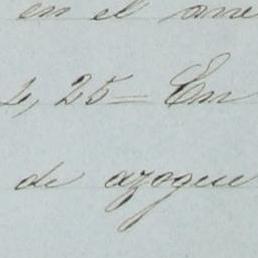 en el ane
4, 25 = En
de azogue